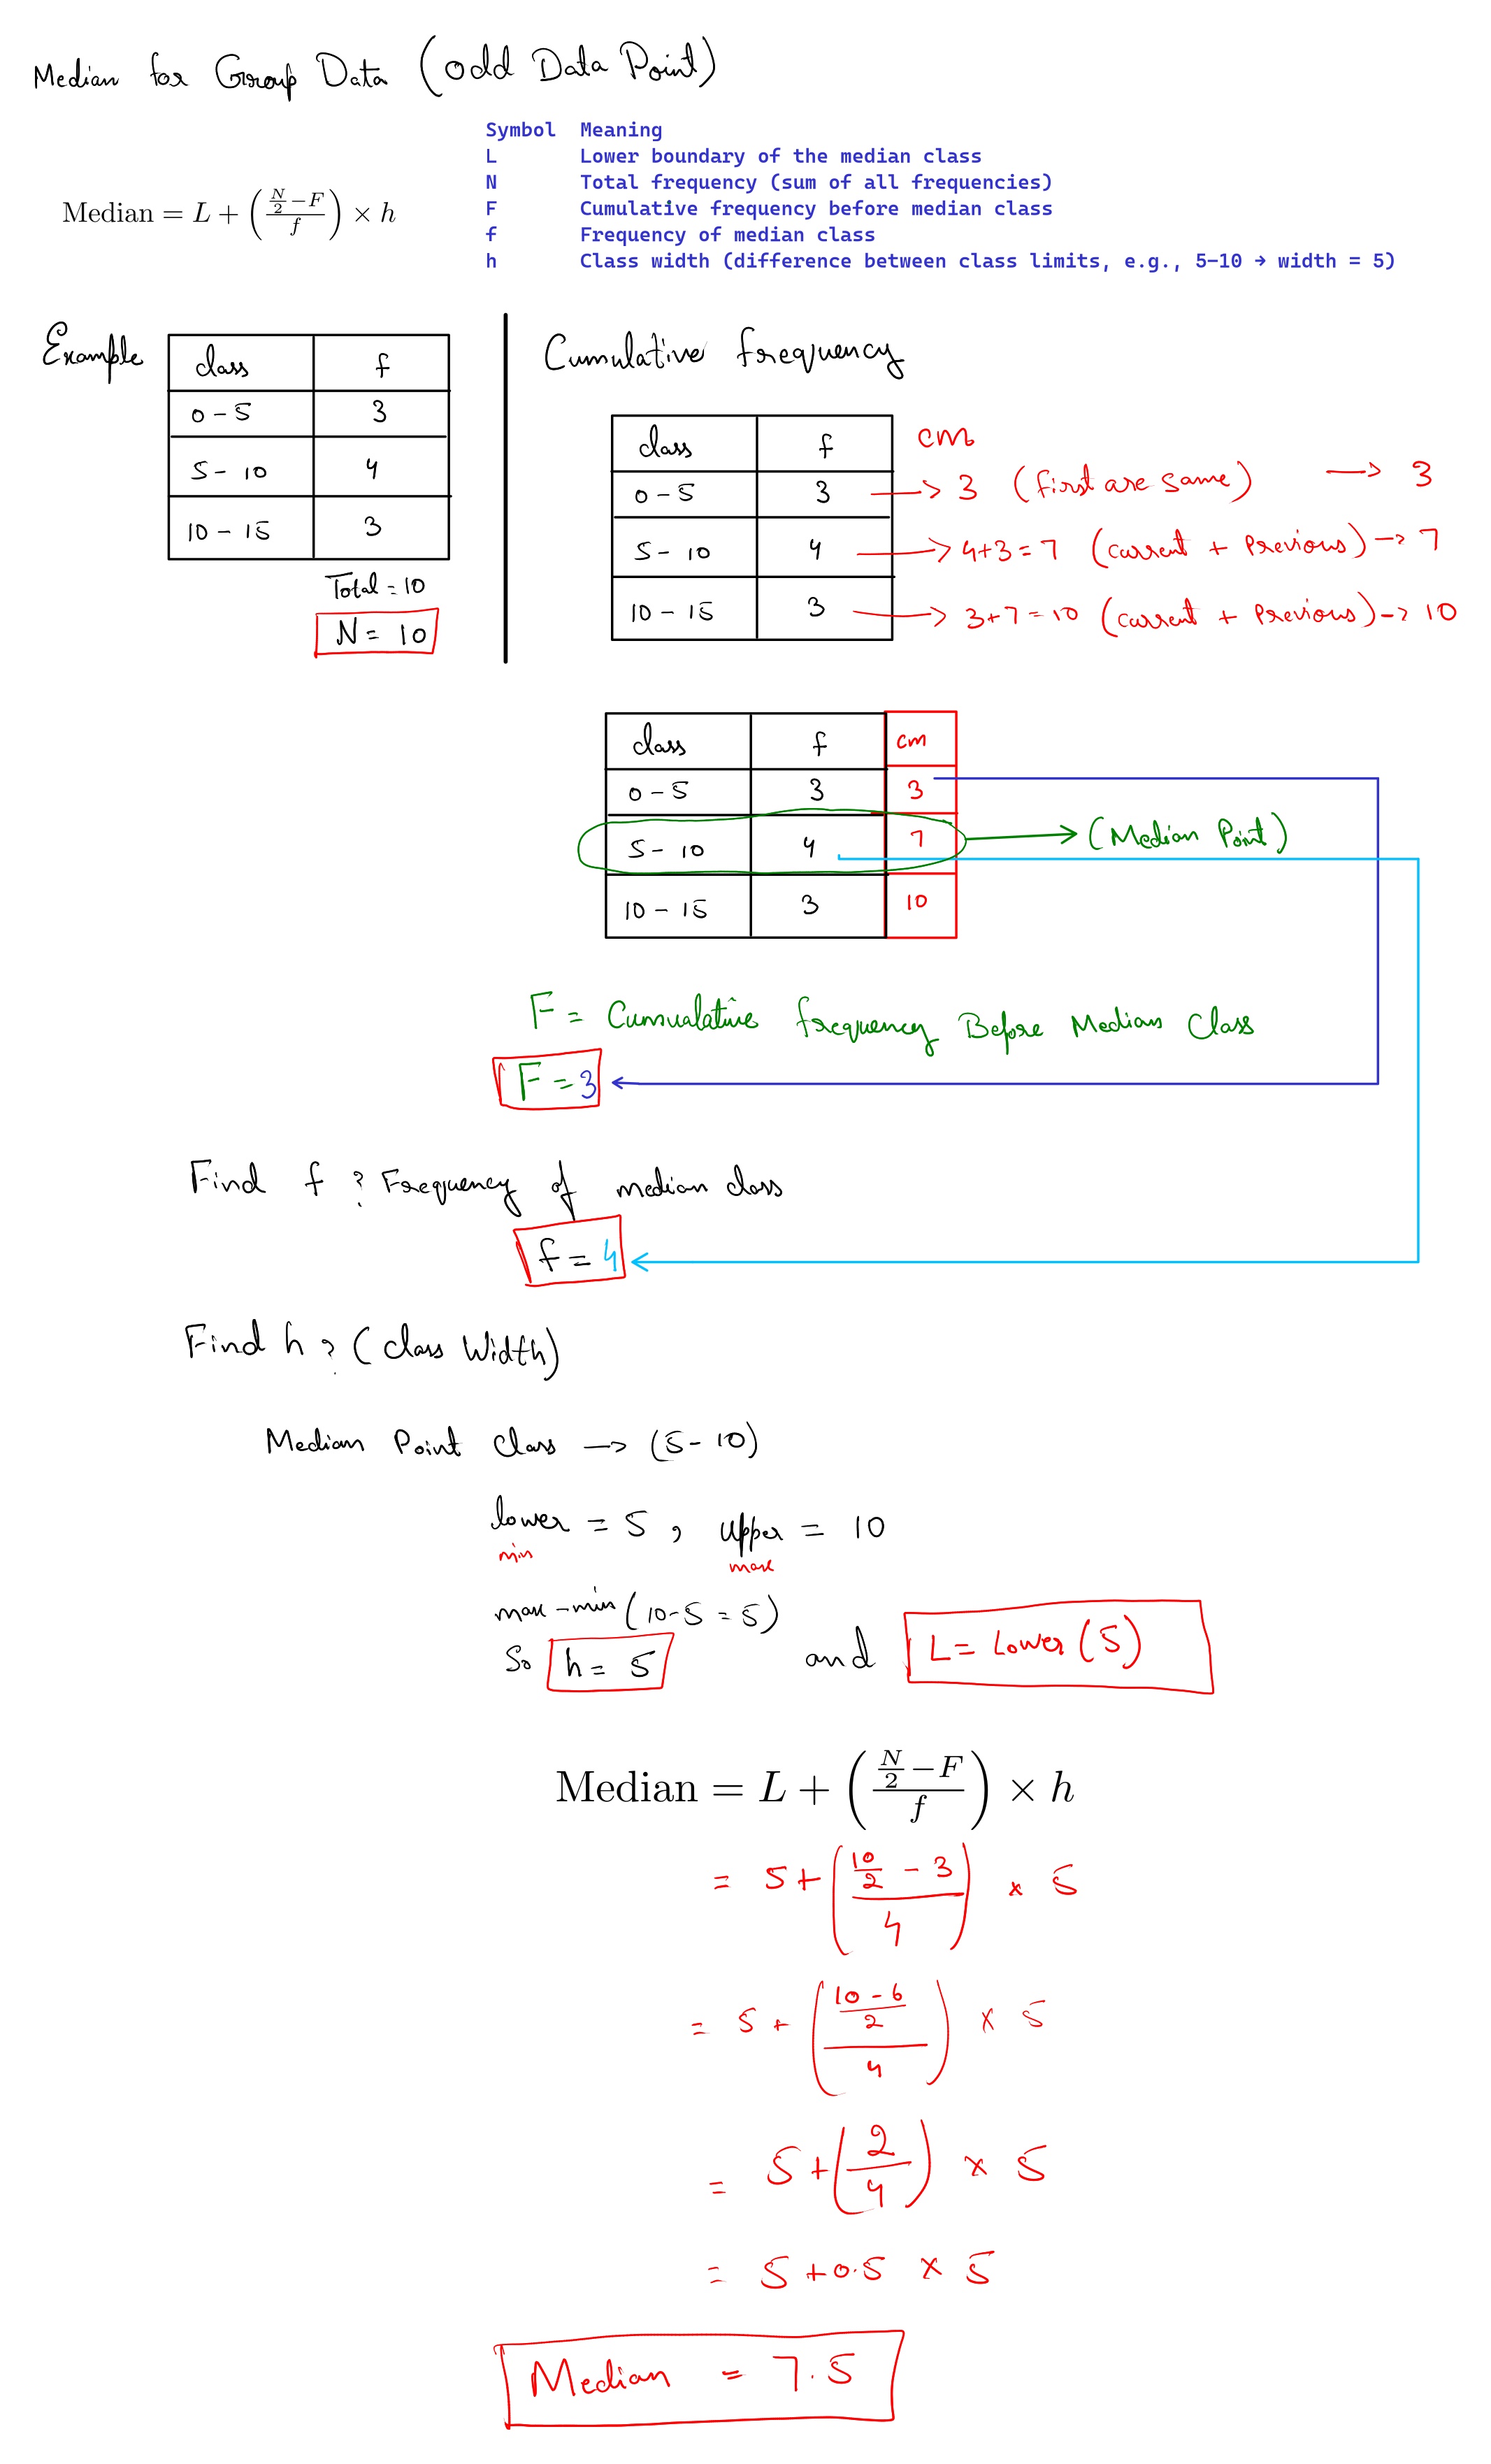 Median for Group Data (odd Data Point)
Symbol Meaning
L Lower boundary of the median class
N Total frequency (sum of all frequencies)
F Cumulative frequency before median class
f Frequency of median class
h Class width (difference between class limits, e.g., 5–10 → width = 5)
Median = L + ( (N/2 − F) / f ) × h
Example
class f
0 - 5 3
5 - 10 4
10 - 15 3
Total = 10
N = 10
Cumulative frequency
class f cm
0 - 5 3 → 3 (first are same) → 3
5 - 10 4 → 4+3 = 7 (current + Previous) → 7
10 - 15 3 → 3+7 = 10 (current + Previous) → 10
class f cm
0 - 5 3 3
5 - 10 4 7 → (Median Point)
10 - 15 3 10
F = Cumualative frequency Before Median Class
F = 3
Find f ? Frequency of median class
f = 4
Find h ? (class Width)
Median Point Class → (5 - 10)
lower = 5 , upper = 10
min max
max - min (10-5 = 5)
So h = 5 and L = Lower (5)
Median = L + ( (N/2 − F) / f ) × h
= 5 + ( (10/2 - 3) / 4 ) × 5
= 5 + ( ((10 - 6) / 2) / 4 ) × 5
= 5 + ( 2/4 ) × 5
= 5 + 0.5 × 5
Median = 7.5